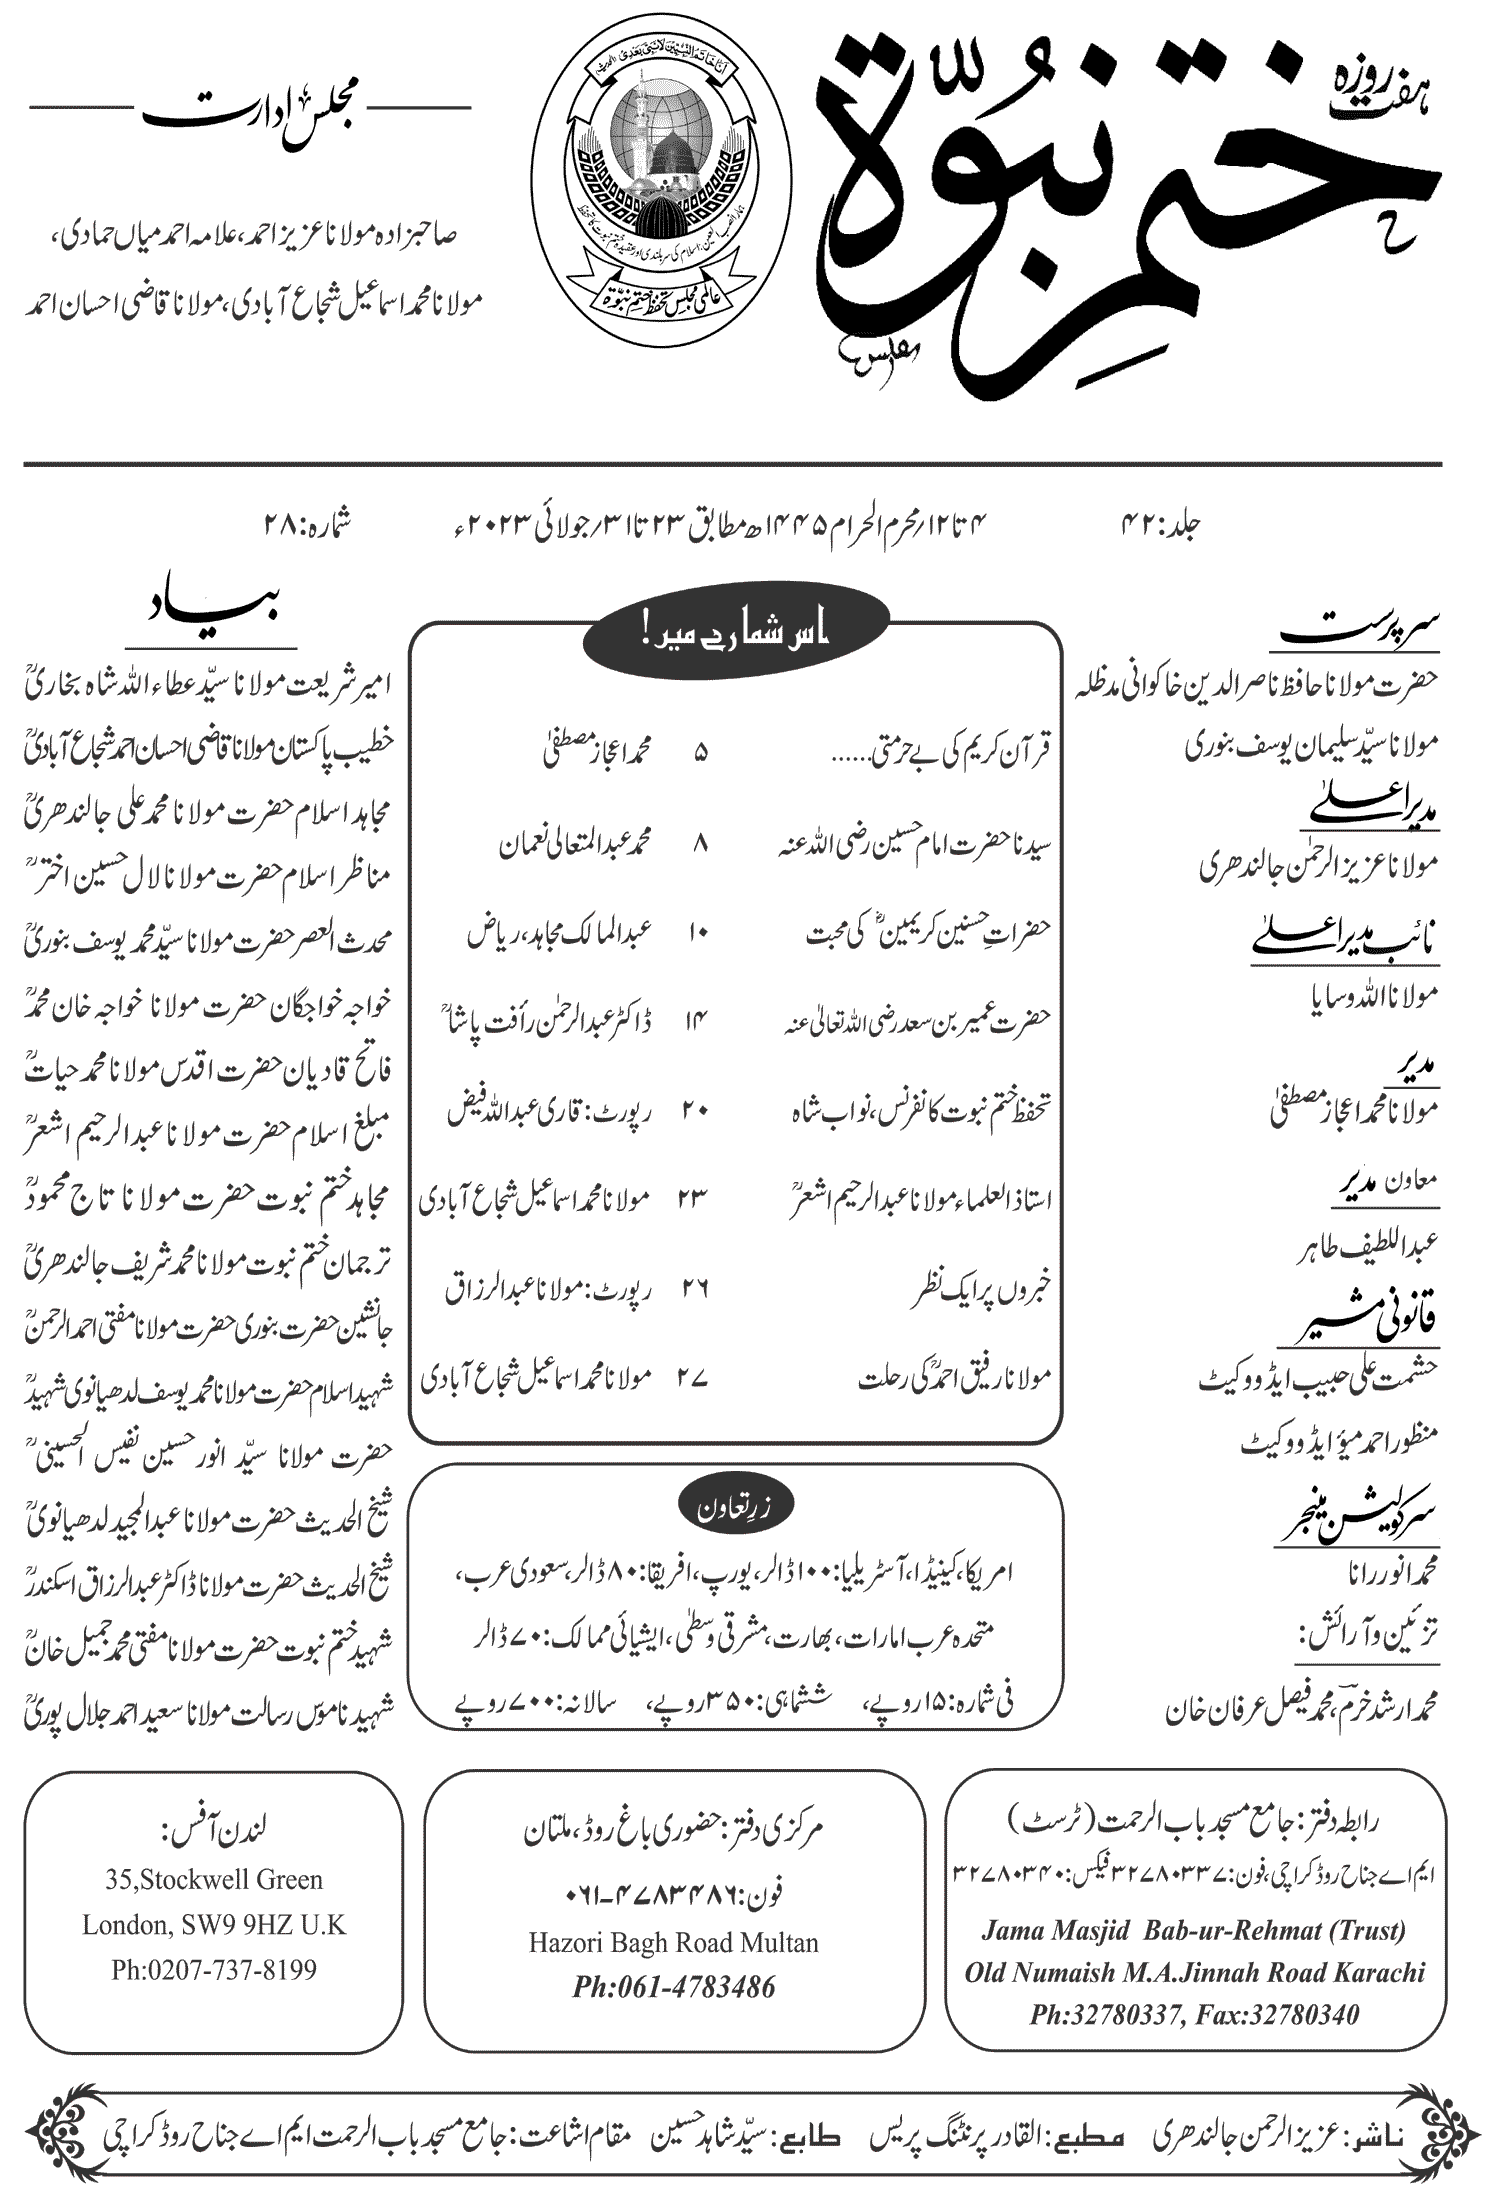 ہفت روزہ
ختم نبوّة
مجلس ادارت
صاحبزادہ مولانا عزیز احمد، علامہ احمد میاں حمادی،
مولانا محمد اسماعیل شجاع آبادی، مولانا قاضی احسان احمد
انا خاتم النبیین لا نبی بعدی (الحدیث)
عالمی مجلس تحفظ ختم نبوّة
جلد: ۴۲
۴ تا ۱۲؍محرم الحرام ۱۴۴۵ھ مطابق ۲۳ تا ۳۱؍جولائی ۲۰۲۳ء
شمارہ: ۲۸
سرپرست
حضرت مولانا حافظ ناصر الدین خاکوانی مدظلہ
مولانا سیّد سلیمان یوسف بنوری
مدیر اعلیٰ
مولانا عزیز الرحمٰن جالندھری
نائب مدیر اعلیٰ
مولانا اللہ وسایا
مدیر
مولانا محمد اعجاز مصطفیٰ
معاون مدیر
عبداللطیف طاہر
قانونی مشیر
حشمت علی حبیب ایڈووکیٹ
منظور احمد میؤ ایڈووکیٹ
سرکولیشن مینجر
محمد انور رانا
تزئین و آرائش:
محمد ارشد خرم، محمد فیصل عرفان خان
اس شمارے میں!
قرآن کریم کی بے حرمتی...... ۵ محمد اعجاز مصطفیٰ
سیدنا حضرت امام حسین رضی اللہ عنہ ۸ محمد عبدالمتعالی نعمان
حضراتِ حسنین کریمینؓ کی محبت ۱۰ عبدالمالک مجاہد، ریاض
حضرت عمیر بن سعد رضی اللہ تعالیٰ عنہ ۱۴ ڈاکٹر عبدالرحمٰن رأفت پاشاؒ
تحفظ ختم نبوت کانفرنس، نواب شاہ ۲۰ رپورٹ: قاری عبداللہ فیض
استاذ العلماء مولانا عبدالرحیم اشعرؒ ۲۳ مولانا محمد اسماعیل شجاع آبادی
خبروں پر ایک نظر ۲۶ رپورٹ: مولانا عبدالرزاق
مولانا رفیق احمدؒ کی رحلت ۲۷ مولانا محمد اسماعیل شجاع آبادی
زرِ تعاون
امریکا، کینیڈا، آسٹریلیا: ۱۰۰ ڈالر، یورپ، افریقا: ۸۰ ڈالر، سعودی عرب،
متحدہ عرب امارات، بھارت، مشرقی وسطٰی، ایشیائی ممالک: ۷۰ ڈالر
فی شمارہ: ۱۵ روپے، ششماہی: ۳۵۰ روپے، سالانہ: ۷۰۰ روپے
بیاد
امیر شریعت مولانا سیّد عطاء اللہ شاہ بخاریؒ
خطیب پاکستان مولانا قاضی احسان احمد شجاع آبادیؒ
مجاہد اسلام حضرت مولانا محمد علی جالندھریؒ
مناظر اسلام حضرت مولانا لال حسین اخترؒ
محدث العصر حضرت مولانا سیّد محمد یوسف بنوریؒ
خواجہ خواجگان حضرت مولانا خواجہ خان محمدؒ
فاتح قادیان حضرت اقدس مولانا محمد حیاتؒ
مبلغ اسلام حضرت مولانا عبدالرحیم اشعرؒ
مجاہد ختم نبوت حضرت مولانا تاج محمودؒ
ترجمان ختم نبوت مولانا محمد شریف جالندھریؒ
جانشین حضرت بنوری حضرت مولانا مفتی احمد الرحمنؒ
شہید اسلام حضرت مولانا محمد یوسف لدھیانوی شہیدؒ
حضرت مولانا سیّد انور حسین نفیس الحسینیؒ
شیخ الحدیث حضرت مولانا عبدالمجید لدھیانویؒ
شیخ الحدیث حضرت مولانا ڈاکٹر عبدالرزاق اسکندرؒ
شہید ختم نبوت حضرت مولانا مفتی محمد جمیل خانؒ
شہید ناموس رسالت مولانا سعید احمد جلال پوریؒ
رابطہ دفتر: جامع مسجد باب الرحمت (ٹرسٹ)
ایم اے جناح روڈ کراچی، فون: ۳۲۷۸۰۳۳۷ فیکس: ۳۲۷۸۰۳۴۰
Jama Masjid Bab-ur-Rehmat (Trust)
Old Numaish M.A.Jinnah Road Karachi
Ph:32780337, Fax:32780340
مرکزی دفتر: حضوری باغ روڈ، ملتان
فون: ۰۶۱-۴۷۸۳۴۸۶
Hazori Bagh Road Multan
Ph:061-4783486
لندن آفس:
35,Stockwell Green
London, SW9 9HZ U.K
Ph:0207-737-8199
ناشر: عزیز الرحمن جالندھری مطبع: القادر پرنٹنگ پریس طابع: سیّد شاہد حسین مقام اشاعت: جامع مسجد باب الرحمت ایم اے جناح روڈ کراچی